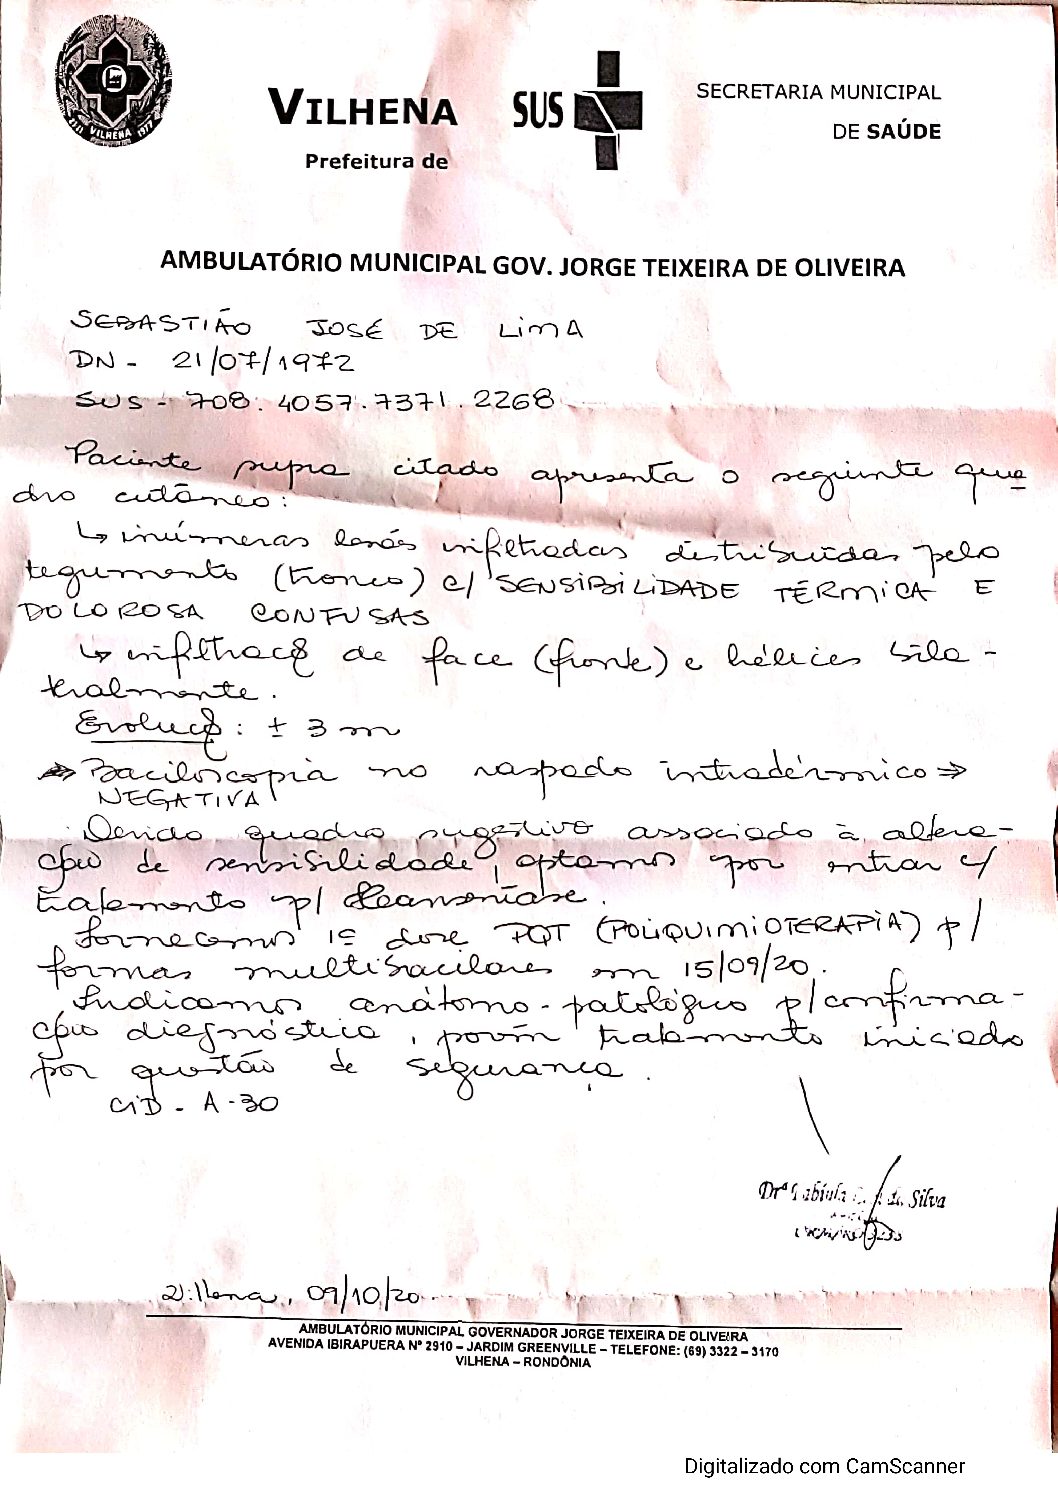 VILHENA
Prefeitura de
SUS
SECRETARIA MUNICIPAL
DE SAÚDE
VILHENA 1977
AMBULATÓRIO MUNICIPAL GOV. JORGE TEIXEIRA DE OLIVEIRA
SEBASTIÃO JOSÉ DE LIMA
DN - 21/07/1972
SUS - 708.4057.7371.2268
Paciente supra citado apresenta o seguinte qua
dro cutâneo:
↳ inúmeras lesões infiltradas distribuídas pelo
tegumento (tronco) c/ SENSIBILIDADE TÉRMICA E
DOLOROSA CONFUSAS
↳ infiltração de face (fronte) e hélices bila-
teralmente.
Evolução: ± 3 m
⇒ Baciloscopia no raspado intradérmico ⇒
NEGATIVA
Devido quadro sugestivo associado à altera-
ção de sensibilidade, optamos por entrar c/
tratamento p/ Hanseníase.
Fornecemos 1ª dose PQT (POLIQUIMIOTERAPIA) p/
formas multibacilares em 15/09/20.
Indicamos anátomo-patológico p/ confirma-
ção diagnóstica, porém tratamento iniciado
por questão de segurança.
CID - A-30
Drª Silva
Vilhena, 09/10/20
AMBULATÓRIO MUNICIPAL GOVERNADOR JORGE TEIXEIRA DE OLIVEIRA
AVENIDA IBIRAPUERA Nº 2910 – JARDIM GREENVILLE – TELEFONE: (69) 3322 – 3170
VILHENA – RONDÔNIA
Digitalizado com CamScanner